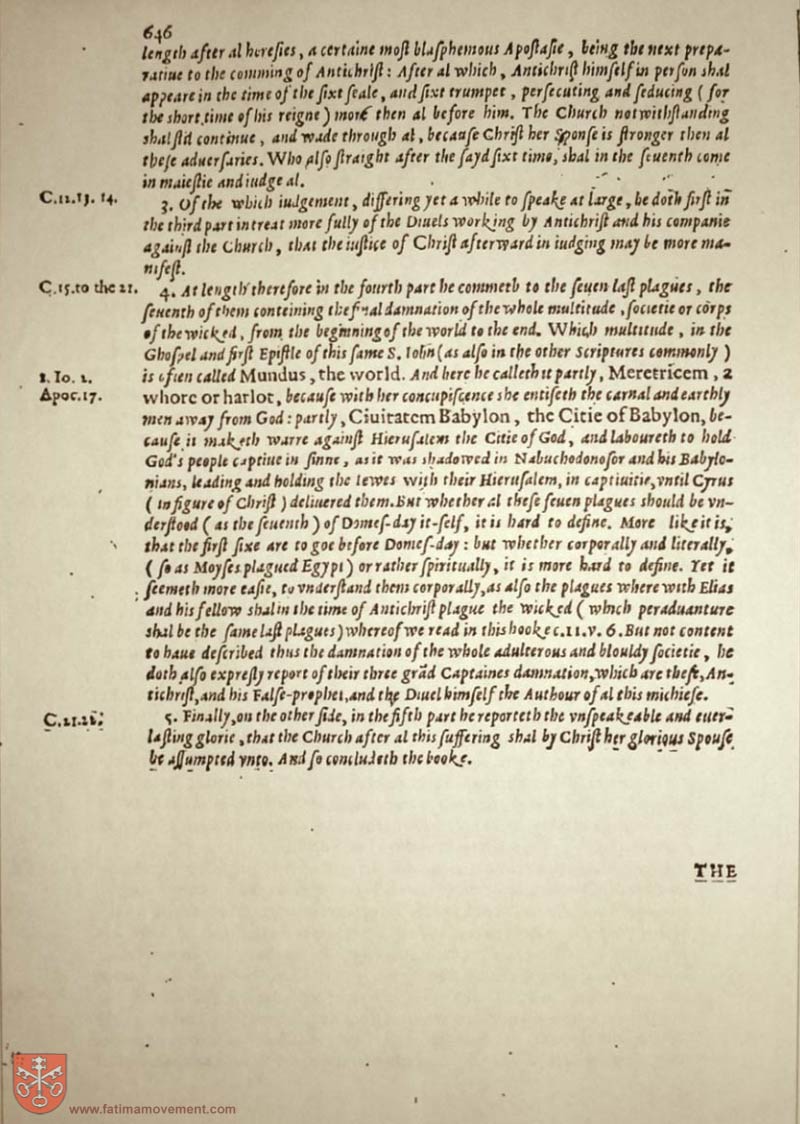 646
length after al heresies, a certaine most blasphemous Apostasie, being the next prepa-
ratiue to the comming of Antichrist: After al which, Antichrist himself in person shal
appeare in the time of the sixt seale, and sixt trumpet, persecuting and seducing (for
the short time of his reigne) more then al before him. The Church notwithstanding
shal stil continue, and wade through al, because Christ her Spouse is stronger then al
these aduersaries. Who also straight after the sayd sixt time, shal in the seuenth come
in maiestie and iudge al.
C.12.13. 14.
3. Of the which iudgement, differing yet a while to speake at large, he doth first in
the third part intreat more fully of the Diuels working by Antichrist and his companie
against the Church, that the iustice of Christ afterward in iudging may be more ma-
nifest.
C.15.to the 21.
4. At length therefore in the fourth part he commeth to the seuen last plagues, the
seuenth of them conteining the final damnation of the whole multitude, societie or corps
of the wicked, from the beginning of the world to the end. Which multitude, in the
Ghospel and first Epistle of this same S. Iohn (as also in the other Scriptures commonly)
1. Io. 2.
is often called Mundus, the world. And here he calleth it partly, Meretricem, a
Apoc.17.
whore or harlot, because with her concupiscence she entiseth the carnal and earthly
men away from God: partly, Ciuitatem Babylon, the Citie of Babylon, be-
cause it maketh warre against Hierusalem the Citie of God, and laboureth to hold
God's people captiue in sinne, as it was shadowed in Nabuchodonosor and his Babylo-
nians, leading and holding the Iewes with their Hierusalem, in captiuitie, vntil Cyrus
(in figure of Christ) deliuered them. But whether al these seuen plagues should be vn-
derstood (as the seuenth) of Domes-day it-self, it is hard to define. More like it is,
that the first sixe are to goe before Domes-day: but whether corporally and literally,
(so as Moyses plagued Egypt) or rather spiritually, it is more hard to define. Yet it
seemeth more easie, to vnderstand them corporally, as also the plagues where with Elias
and his fellow shal in the time of Antichrist plague the wicked (which peraduanture
shal be the same last plagues) whereof we read in this booke c.11.v.6. But not content
to haue described thus the damnation of the whole adulterous and blouddy societie, he
doth also expresly report of their three grãd Captaines damnation, which are these, An-
tichrist, and his False-prophet, and the Diuel himself the Authour of al this michiefe.
C.21.22.
5. Finally, on the other side, in the fifth part he reporteth the vnspeakeable and euer-
lasting glorie, that the Church after al this suffering shal by Christ her glorious Spouse
be assumpted vnto. And so concludeth the booke.
THE
www.fatimamovement.com